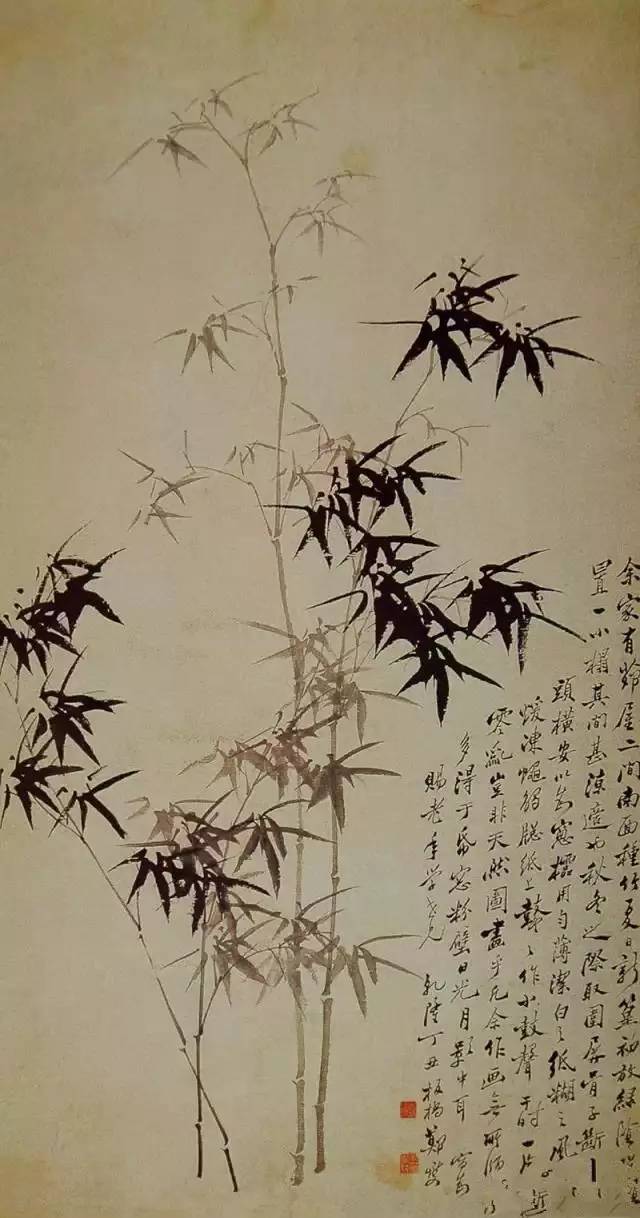 余家有茆屋二間南面種竹夏日新篁初放綠陰照
置一小榻其間甚涼適也秋冬之際取圍屏骨子斷
頭橫安以為窓櫺用勻薄潔白之紙糊之風
煖凍蠅觸牕紙上鼕鼕作小鼓聲于時一片
零亂豈非天然圖畫乎凡余作画無所師
多得于帋窓粉壁日光月影中耳 寫為
賜老年學老兄 乾隆丁丑板橋鄭燮